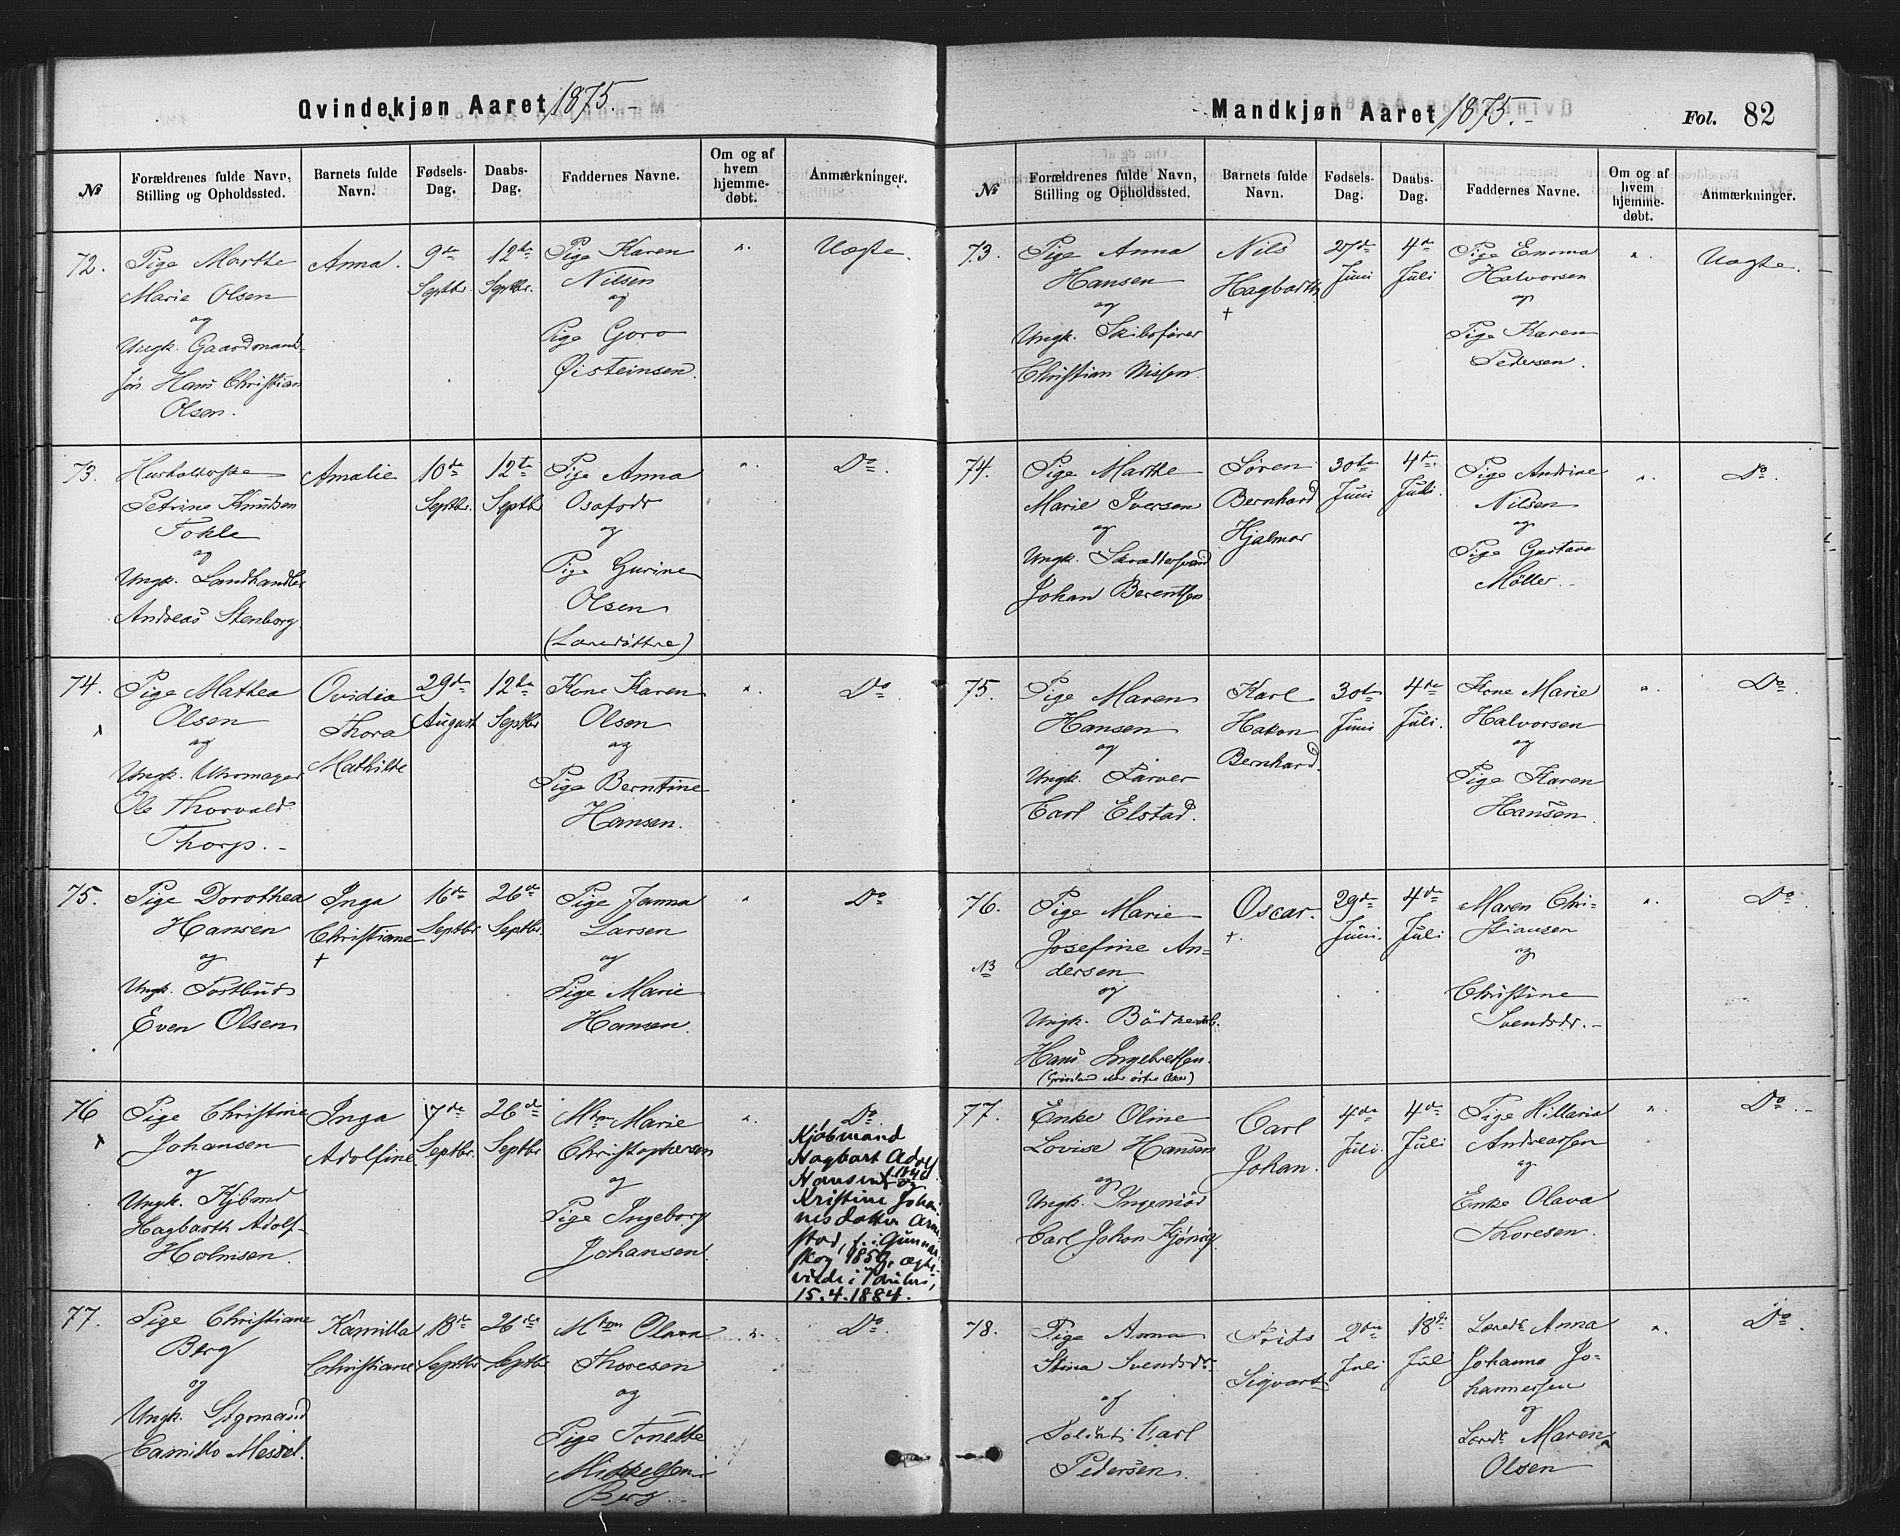 Qvindekjøn Aaret 1875.-
№
Forældrenes fulde Navn, Stilling og Opholdssted.
Barnets fulde Navn.
Fødsels-Dag.
Daabs-Dag.
Faddernes Navne.
Om og af hvem hjemme-døbt.
Anmærkninger.
72.
Pige Marthe
Marie Olsen
og
Ungk. Gaardmands-
søn Hans Christian
Olsen.
Anna.
9de
Septbr.
12te
Septbr.
Pige Karen
Nilsen
og
Pige Goro
Øisteinsen.
"
Uægte.
73.
Husholderske
Petrine Knudsen
Tokle
og
Ungk. Landhandler
Andreas Stenborg.
Amalie
10de
Septbr.
12te
Septb
Pige Anna
Osafodr
og
Pige Gurine
Olsen
"
Do.
74.
Pige Mathea
Olsen
og
Ungk. Uhrmager
Ole Thorvald
Thorp.-
Ovidia
Thora
Mathilde
29de
August
12te
Septbr.
Kone Karen
Olsen
og
Pige Berntine
Hansen.
"
Do
75.
Pige Dorothea
Hansen
og
Ungk. Postbud
Even Olsen
Inga
Christiane
+
16de
Septbr.
26de
Septbr.
Pige Janna
Larsen
og
Pige Marie
Hansen.
"
Do
76
Pige Christine
Johansen
og
Ungk. Kjbmd
Hagbarth Adolf
Holmsen.
Inga
Adolfine
7de
Septbr.
26de
Septbr.
Mtm Marie
Christophersen
og
Pige Ingeborg
Johansen.
"
Do.
Kjøbmand
Hagbart Adolf
Hansen
Kristine Joha-
nesdatter
stad, f. i Gunnar
skog 1859, ægte-
viede i
15.4.1884.
77.
Pige Christiane
Berg
og
Ungk. Styrmand
Camillo Messel.
Kamilla
Christiane
18de
Septbr
26de
Septbr
Mtm Olava
Thoresen
og
Pige Tonette
Mikkelsen
Berg.-
"
Do.
Mandkjøn Aaret 1875.-
Fol. 82
№
Forældrenes fulde Navn, Stilling og Opholdssted.
Barnets fulde Navn.
Fødsels-Dag.
Daabs-Dag.
Faddernes Navne.
Om og af hvem hjemme-døbt.
Anmærkninger.
73.
Pige Anna
Hansen
og
Ungk. Skibsfører
Christian Nissen.
Nils
Hagbarth
+
27de
Juni
4de
Juli
Pige Emma
Halvorsen
og
Pige Karen
Pedersen.
"
Uægte.
74.
Pige Marthe
Marie Iversen
og
Ungk. Skræddersvend
Johan Berentsen.
Søren
Bernhard
Hjalmar
30te
Juni
4de
Juli.
Pige Andrine
Nilsen
og
Pige Gustava
Møller.-
"
Do.
75.
Pige Maren
Hansen
og
Ungk. Farver
Carl Elstad.
Karl
Hakon
Bernhard.
30te
Juni
4de
Juli.
Kone Marie
Halvorsen
og
Pige Karen
Hansen.
"
Do.
76.
N3
Pige Marie
Josefine An-
dersen
og
Ungk. Bödker
Hans Ingebretsen.
Oscar.
+.
29de
Juni.
4de
Juli
Maren Chri-
stiansen
og
Christine
Svendsdr.-
"
Do.
77.
Enke Oline
Lovise Hansen
og
Ungk. Ingeniør
Carl Johan Kjönig.
Carl
Johan.
4de
Juli.
4de
Juli
Pige Hillaria
Andreassen
og
Enke Olava
Thoresen.
"
Do.-
78.
Pige Anna
Stina Svendsdr.
og
Soldat Carl
Pedersen.
Frits
Sigvart
2den
Juli
18de
Jul
Anna
Johanna Jo-
hannessen
og
Maren
Olsen
"
Do.